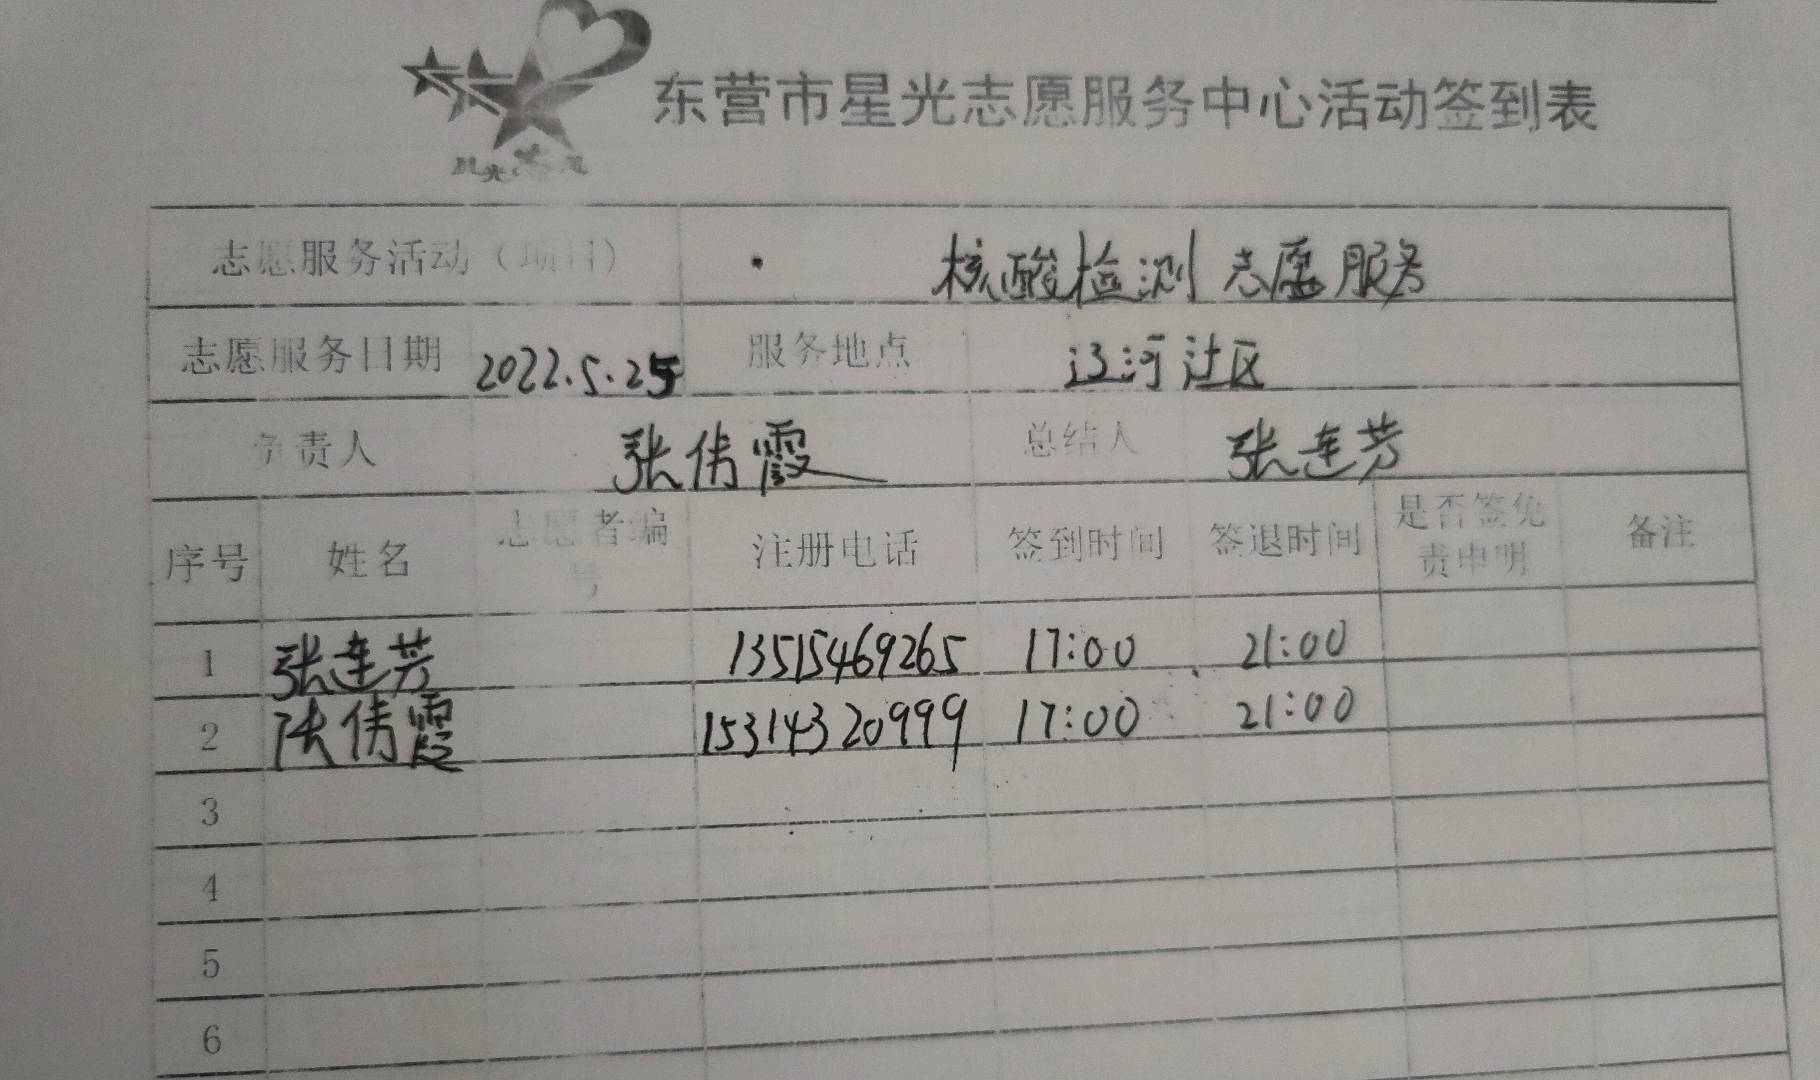 星光志愿
东营市星光志愿服务中心活动签到表
志愿服务活动（项目） 核酸检测志愿服务
志愿服务日期 2022.5.25 服务地点 辽河社区
负责人 张倩霞 总结人 张连芳
序号 姓名 志愿者编号 注册电话 签到时间 签退时间 是否签免责申明 备注
1 张连芳 13515469265 17:00 21:00
2 张倩霞 15314320999 17:00 21:00
3
4
5
6